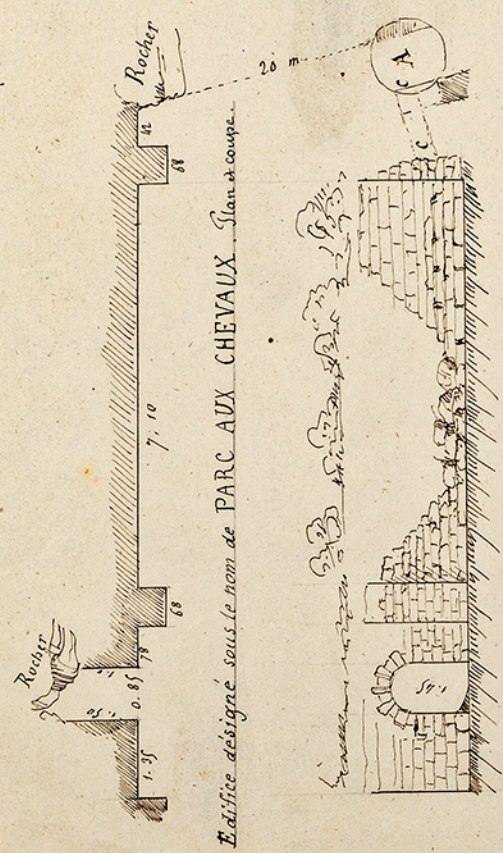 Rocher
20 m
A
C
C
42
68
7,10
68
78
Rocher
1.50
0.85
1.35
1.45
Edifice désigné sous le nom de PARC AUX CHEVAUX. Plan et coupe.